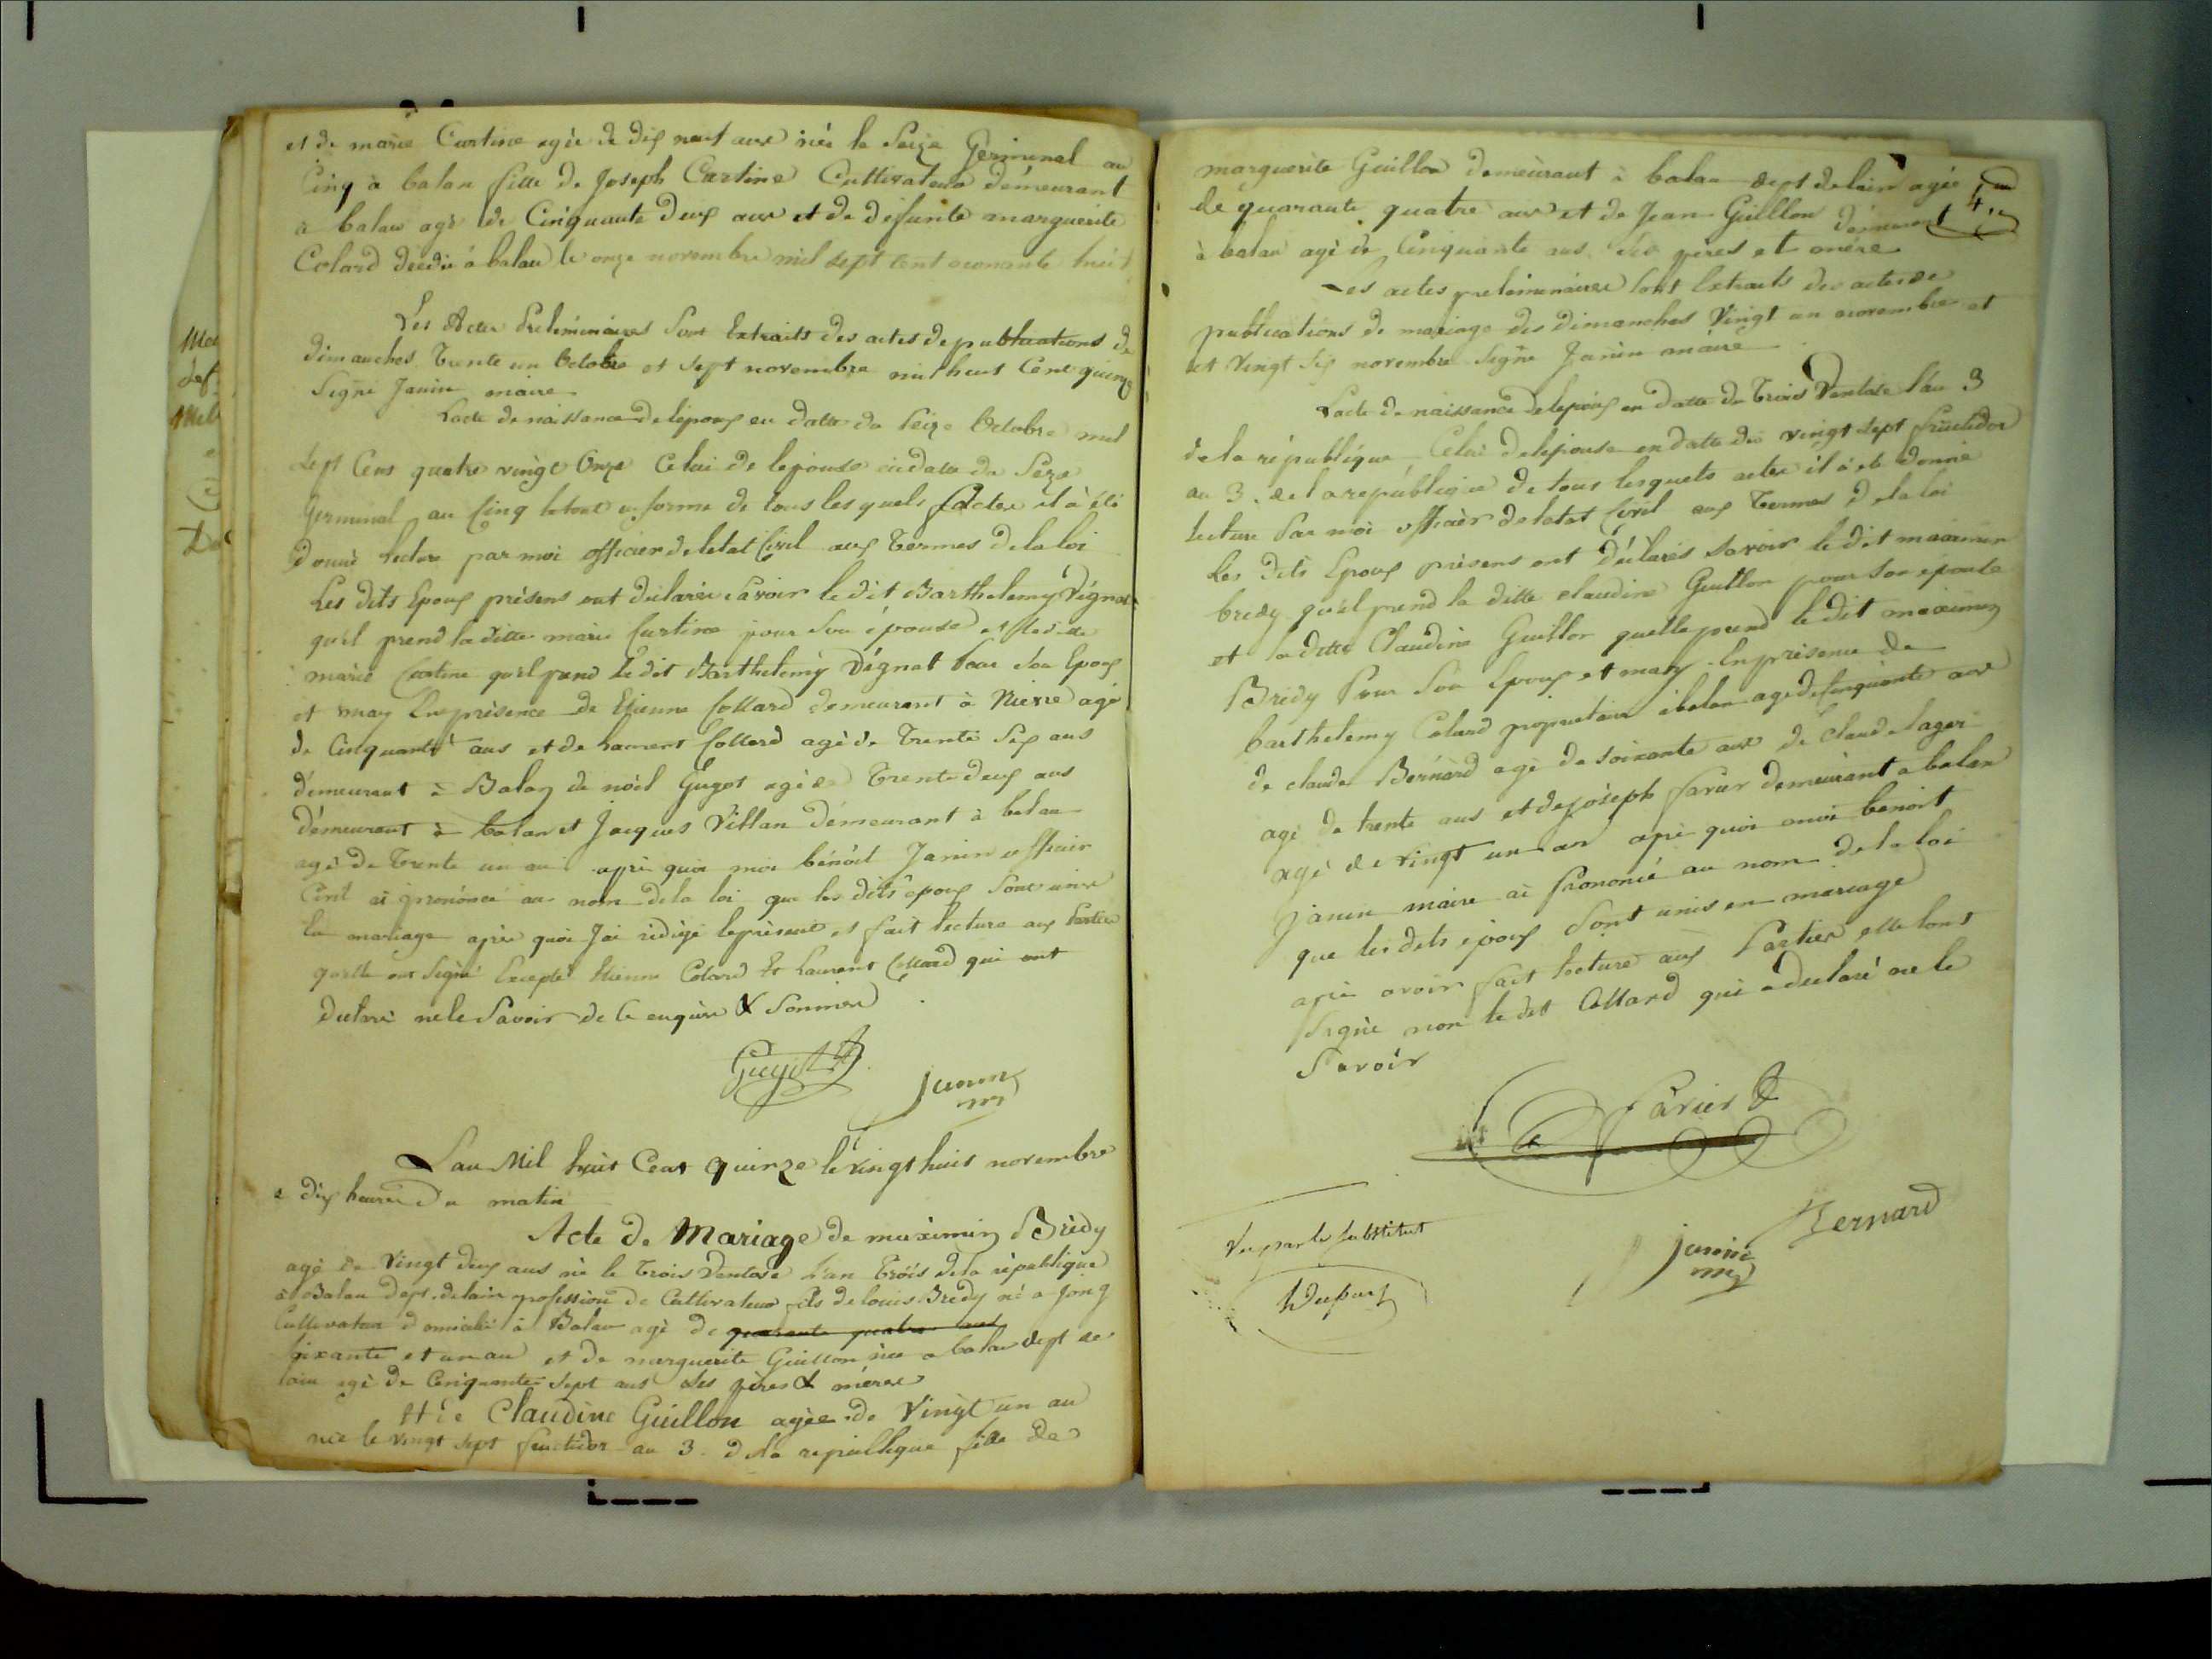 et de marie Curtine agée de dix neuf ans née le Seize Germinal an
Cinq à balan fille de Joseph Curtine Cultivateur démeurant
à balan agé de Cinquante deux ans et de défunte marguerite
Colard décédée à balan le onze novembre mil sept cent nonante huit
Les Actes Préliminaires Sont Extraits des actes de publications de
dimanches Trente un Octobre et sept novembre mil huit Cent quinze
Signé Janin maire
Lacte de naissance de lépoux en datte du Seize Octobre mil
Sept Cens quatre vingt Onze Celui de lepouse en datte du Seze
Germinal an Cinq le tout en forme de tous les quels Actes il à été
donné lecture par moi officier de letat Civil aux Termes de la loi
Les dits Epoux présens ont déclarés savoir le dit Barthelemy Dégnat
qu'il prend la ditte marie Curtine pour Son épouse et la ditte
marie Curtine qu'el prend le dit Barthelémy Dégnat pour Son Epoux
et mary En présence de Etienne Collard demeurant à Nievre agé
de Cinquante ans et de Laurent Collard agé de Trente Six ans
démeurant à Balan de noël Guyot agé de Trente deux ans
démeurant à balan et Jacques Villan démeurant à balan
agé de Trente un an après quoi moi bénoit Janin officier
Civil ai prenoncé au nom de la loi que les dits époux Sont unis
En mariage après quoi Jai rédigé le présent et fait lecture aux Parties
quelle ont Signé Excepté Etienne Colard Et Laurent Collard qui ont
declaré ne le Savoir de ce enquise & Sommes
Guyot
Janin
m
Lan Mil huit Cent Quinze le vingt huit novembre
a dix heures Du matin
Acte De Mariage de maximin Brédy
agé de Vingt deux ans né le Trois Ventose L'an Trois de la république
à Balan Dept. de lain profession de Cultivateur fils de louis Bredy né a Jong
Cultivateur domicilié à Balan agé de quarante quatre ans
Soixante et un an et de marguerite Guillon née a balan dept de
lain agé de Cenquante Sept ans Ses pères & méres
Et de Claudine Guillon agée de Vingt un an
née le vingt sept fructidor an 3. de la republique fille de
marguerite Guillon demeurant à balan dept de lain agée
4
de quarante quatre ans et de Jean Guillon démeurant
à balan agé de Cinquante ans Ses pères et mére
Les actes preliminaires Sont Extraits des actes de
publications de mariage des dimanches Vingt un novembre et
et Vingt Six novembre Signé Janin maire
Lacte de naissance de lepoux en datte du Trois Ventose lan 3
de la république Celui de lepouse en datte du vingt sept fructidor
an 3. de la republique de tous lesquels actes il à ete donné
lecture Par moi officier de letat Civil aux Termes de la loi
Les dits Epoux présens ont déclarés savoir le dit maximin
bredy qu'il prend la ditte claudine Guillon pour Son epouse
et la ditte Claudine Guillon quelle prend le dit maximin
Bredy Pour Son Epoux et mary. En présence de
barthelemy Colard propriétaire à balan agé de Cinquante ans
de claude Bernard agé de soixante ans de Claude lager
agé de trente ans et de joseph farier demeurant a balan
agé de vingt un an après quoi moi benoit
janin maire ai Prononcé au nom de la loi
que les dits époux Sont unis en mariage
après avoir fait lecture aux Parties elle lont
Signée non le dit Collard qui a declaré ne le
Savoir
farier
Bernard
Janin
m
Vu par le Substitut
Dupuy